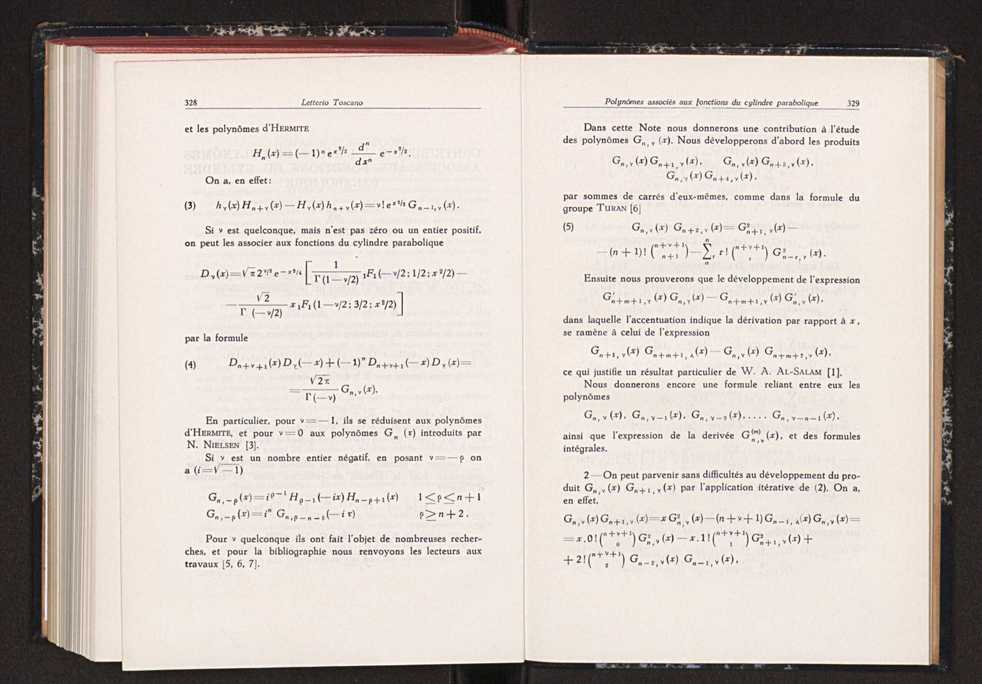 328 Letterio Toscano
et les polynômes d'HERMITE
H_n(x) = (—1)^n e^{x²/2} d^n/dx^n e^{—x²/2}.
On a, en effet:
(3) h_ν(x) H_{n+ν}(x) — H_ν(x) h_{n+ν}(x) = ν! e^{x²/2} G_{n—1,ν}(x).
Si ν est quelconque, mais n'est pas zéro ou un entier positif,
on peut les associer aux fonctions du cylindre parabolique
D_ν(x) = √π 2^{ν/2} e^{—x²/4} [ 1/Γ(1—ν/2) ₁F₁(—ν/2; 1/2; x²/2) —
— √2/Γ(—ν/2) x ₁F₁(1—ν/2; 3/2; x²/2) ]
par la formule
(4) D_{n+ν+1}(x) D_ν(—x) + (—1)^n D_{n+ν+1}(—x) D_ν(x) =
= √2π/Γ(—ν) G_{n,ν}(x).
En particulier, pour ν = — 1, ils se réduisent aux polynômes
d'HERMITE, et pour ν = 0 aux polynômes G_n (x) introduits par
N. NIELSEN [3].
Si ν est un nombre entier négatif, en posant ν = — p on
a (i = √—1)
G_{n,—p}(x) = i^{p—1} H_{p—1}(—ix) H_{n—p+1}(x) 1 ≤ p ≤ n + 1
G_{n,—p}(x) = i^n G_{n,p—n—2}(— i x) p ≥ n + 2.
Pour ν quelconque ils ont fait l'objet de nombreuses recher-
ches, et pour la bibliographie nous renvoyons les lecteurs aux
travaux [5, 6, 7].
Polynômes associés aux fonctions du cylindre parabolique 329
Dans cette Note nous donnerons une contribution à l'étude
des polynômes G_{n,ν}(x). Nous développerons d'abord les produits
G_{n,ν}(x) G_{n+1,ν}(x), G_{n,ν}(x) G_{n+3,ν}(x),
G_{n,ν}(x) G_{n+4,ν}(x),
par sommes de carrés d'eux-mêmes, comme dans la formule du
groupe TURAN [6]
(5) G_{n,ν}(x) G_{n+2,ν}(x) = G²_{n+1,ν}(x) —
— (n + 1)! (n+ν+1 n+1) — Σ_r r! (n+ν+1 r) G²_{n—r,ν}(x).
Ensuite nous prouverons que le développement de l'expression
G'_{n+m+1,ν}(x) G_{n,ν}(x) — G_{n+m+1,ν}(x) G'_{n,ν}(x),
dans laquelle l'accentuation indique la dérivation par rapport à x,
se ramène à celui de l'expression
G_{n+1,ν}(x) G_{n+m+1,ν}(x) — G_{n,ν}(x) G_{n+m+2,ν}(x),
ce qui justifie un résultat particulier de W. A. AL-SALAM [1].
Nous donnerons encore une formule reliant entre eux les
polynômes
G_{n,ν}(x), G_{n,ν—1}(x), G_{n,ν—2}(x), . . . . , G_{n,ν—n—1}(x),
ainsi que l'expression de la derivée G^{(m)}_{n,ν}(x), et des formules
intégrales.
2 — On peut parvenir sans difficultés au développement du pro-
duit G_{n,ν}(x) G_{n+1,ν}(x) par l'application itérative de (2). On a,
en effet,
G_{n,ν}(x) G_{n+1,ν}(x) = x G²_{n,ν}(x) — (n + ν + 1) G_{n—1,ν}(x) G_{n,ν}(x) =
= x . 0! (n+ν+1 0) G²_{n,ν}(x) — x . 1! (n+ν+1 1) G²_{n+1,ν}(x) +
+ 2! (n+ν+1 2) G_{n—2,ν}(x) G_{n—1,ν}(x),